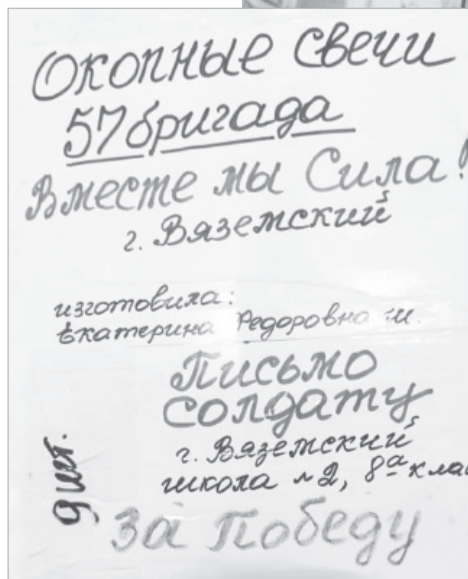 Окопные свечи
57 бригада
Вместе мы Сила!
г. Вяземский
изготовила:
Екатерина Федоровна Ш.
Письмо
солдату
г. Вяземский
школа №2, 8а клас
9 шт.
За Победу